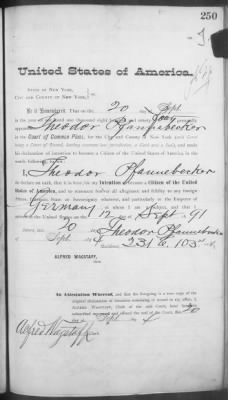 250
United States of America.
STATE OF NEW YORK,
CITY AND COUNTY OF NEW YORK,
Be it Remembered, That on the 20 Sept.
in the year of our Lord one thousand eight hundred and ninety four personally appeared
Theodor Pfannebecker
COURT OF COMMON PLEAS, for the City and County of New York
declaration of Intention to become a Citizen of the United States, in the
I, Theodor Pfannebecker
do declare on oath, that it is bona fide my Intention to become a Citizen of the United
States of America, and to renounce forever all allegiance and fidelity to any foreign
Prince, Potentate, State or Sovereignty whatever, and particularly to the Emperor of
Germany of whom I am subject, and that I
in the United States on the 12 Sept. 91
Sworn, this 20
Sept. 4 Theodor Pfannebecker
Residence, 231 E. 103 st.
ALFRED WAGSTAFF,
In Attestation Whereof, and that the foregoing is a true copy of the
original declaration of intention remaining of record in my office, I,
ALFRED WAGSTAFF, Clerk of the said Court, have hereunto
subscribed my name and affixed the seal of the Court, this 20
day of Sept. 4
Alfred Wagstaff